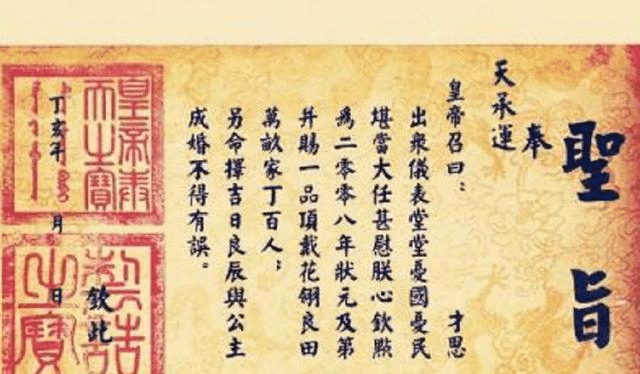 聖旨
奉
天承運
皇帝召曰： 才思
出衆儀表堂堂憂國憂民
堪當大任甚慰朕心欽點
爲二零零八年狀元及第
并賜一品頂戴花翎良田
萬畝家丁百人；
另命擇吉日良辰與公主
成婚不得有誤。
欽此
丁亥年 月 日